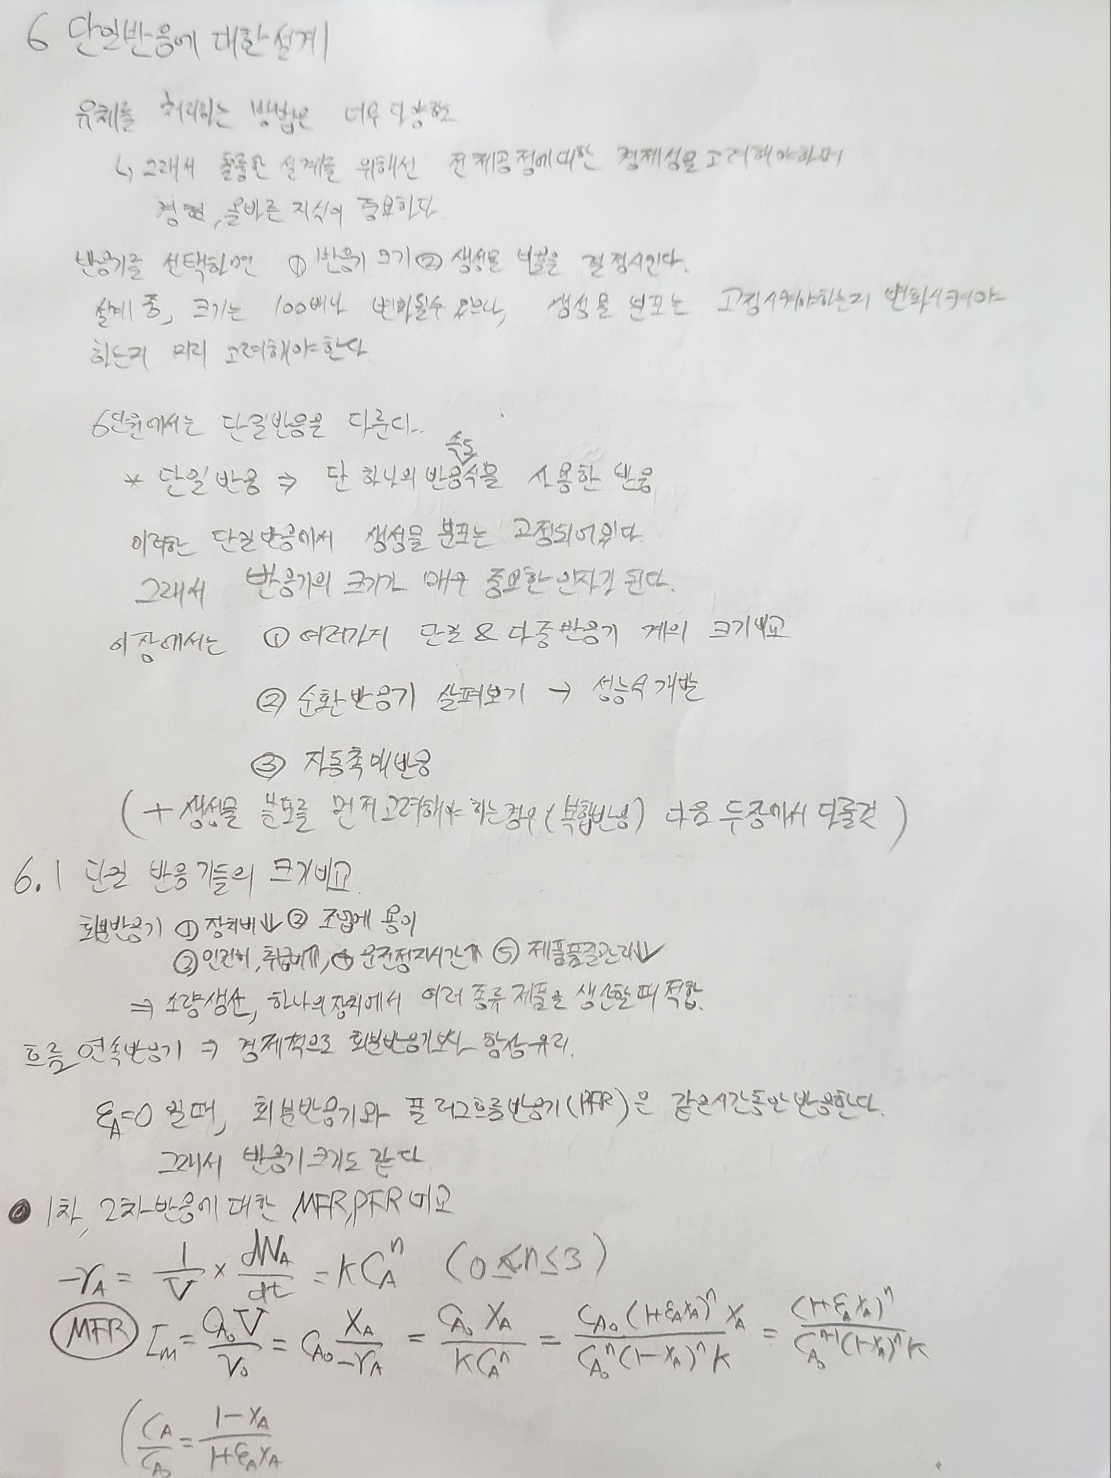 6 단일반응에 대한 설계
유체를 처리하는 방법은 너무 다양함
↳ 그래서 훌륭한 설계를 위해선 전체공정에 대한 경제성을 고려해야하며
경험, 올바른 지식이 중요하다.
반응기를 선택하면 ① 반응기 크기 ② 생성물 비율을 결정시킨다.
설계 중, 크기는 100배나 변화될수 있으나, 생성물 분포는 고정시켜야하는지 변화시켜야
하는지 미리 고려해야한다
6단원에서는 단일반응을 다룬다..
* 단일반응 ⇒ 단 하나의 반응속도식을 사용한 반응
이러한 단일반응에서 생성물 분포는 고정되어있다.
그래서 반응기의 크기가 매우 중요한 인자가 된다.
이장에서는 ① 여러가지 단일 & 다중반응기 계의 크기비교
② 순환반응기 살펴보기 → 성능식 개발
③ 자동촉매반응
(+ 생성물 분포를 먼저고려해야 하는경우(복합반응) 다음 두장에서 다룰것)
6.1 단일 반응기들의 크기비교
회분반응기 ① 장치비↓ ② 조업에 용이
③ 인건비, 취급비↑, ④ 운전정지시간↑ ⑤ 제품품질관리↓
⇒ 소량생산, 하나의장치에서 여러 종류 제품을 생산할때 적합.
흐름 연속반응기 ⇒ 경제적으로 회분반응기보다 항상유리.
ε_A=0 일때, 회분반응기와 플러그흐름반응기(PFR)은 같은시간동안 반응한다.
그래서 반응기 크기도 같다.
● 1차, 2차반응에 대한 MFR, PFR 비교
-r_A = 1/V × dN_A/dt = kC_A^n (0≤n≤3)
MFR τ_m = C_A₀V/v₀ = C_A₀ X_A/-r_A = C_A₀ X_A/kC_A^n = C_A₀(1+ε_A X_A)^n X_A / C_A₀^n(1-X_A)^n k = (1+ε_A X_A)^n / C_A₀^(n-1)(1-X_A)^n k
(C_A/C_A₀ = 1-X_A / 1+ε_A X_A